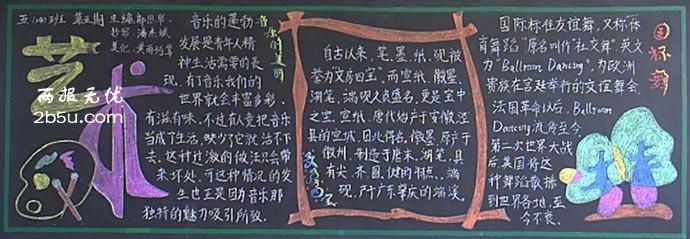 五(14)班 第五期
主编:
抄写:
美化:
艺术
两报无忧
2b5u.com
音乐的美丽
音乐的蓬勃
发展是青年人精
神生活需要的表
现,有了音乐我们的
世界就会丰富多彩、
有滋有味,不过有人竟把音乐
当成了生活,缺少它就活不下
去,这种过激的做法只会带
来坏处,可这种情况的发
生也正是因为音乐那
独特的魅力吸引所致.
自古以来,笔、墨、纸、砚被
誉为文房四宝,而宣纸、徽墨、
湖笔、端砚人负盛名,更是宝中
之宝.宣纸,唐代始产于安徽泾
县的宣城,因此得名.徽墨,原产于
徽州,制造于唐末.湖笔,具
有尖、齐、圆、健的特点.端
砚,产于广东肇庆的端溪.
文房四宝
国标舞
国际标准友谊舞,又称"体
育舞蹈"原名叫作"社交舞",英文
为"Ballroom Dancing",为欧洲
贵族在宫廷举行的交谊舞会.
法国革命以后,Ballroom
Dancing流传至今.
第一次世界大战
后,美国将这
种舞蹈散播
到世界各地,至
今不衰.